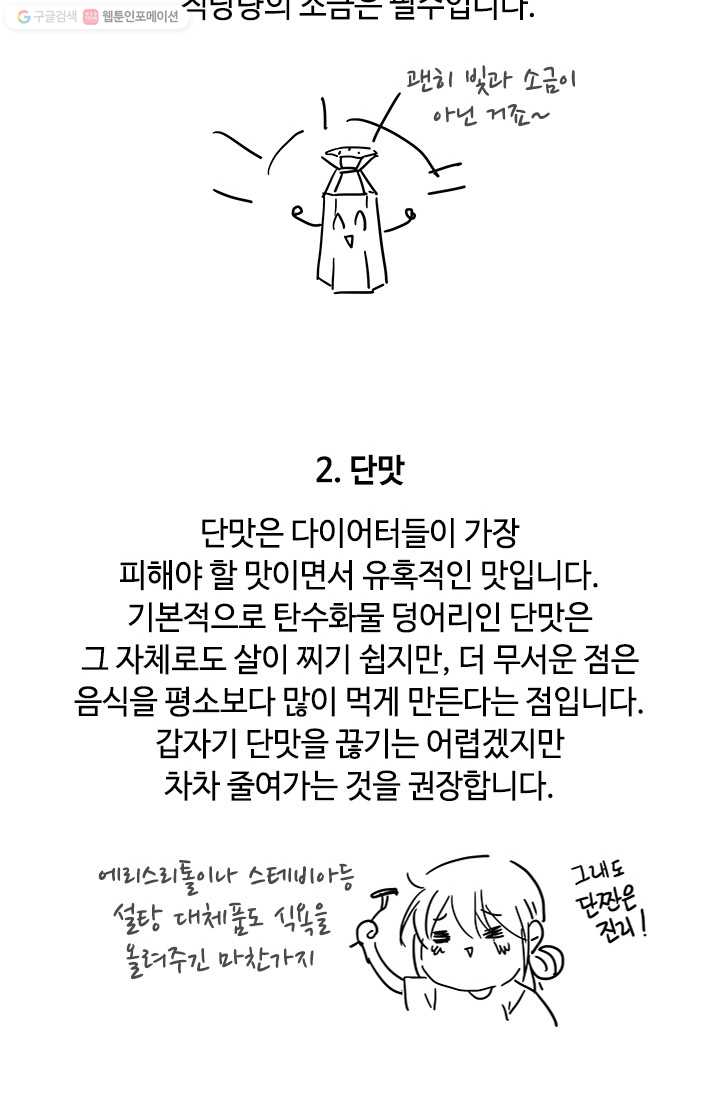 구글검색 웹툰인포메이션
적당량의 소금은 필수입니다.
괜히 빛과 소금이
아닌 거죠~
2. 단맛
단맛은 다이어터들이 가장
피해야 할 맛이면서 유혹적인 맛입니다.
기본적으로 탄수화물 덩어리인 단맛은
그 자체로도 살이 찌기 쉽지만, 더 무서운 점은
음식을 평소보다 많이 먹게 만든다는 점입니다.
갑자기 단맛을 끊기는 어렵겠지만
차차 줄여가는 것을 권장합니다.
에리스리톨이나 스테비아등
설탕 대체품도 식욕을
올려주긴 마찬가지
그래도
단짠은
진리!